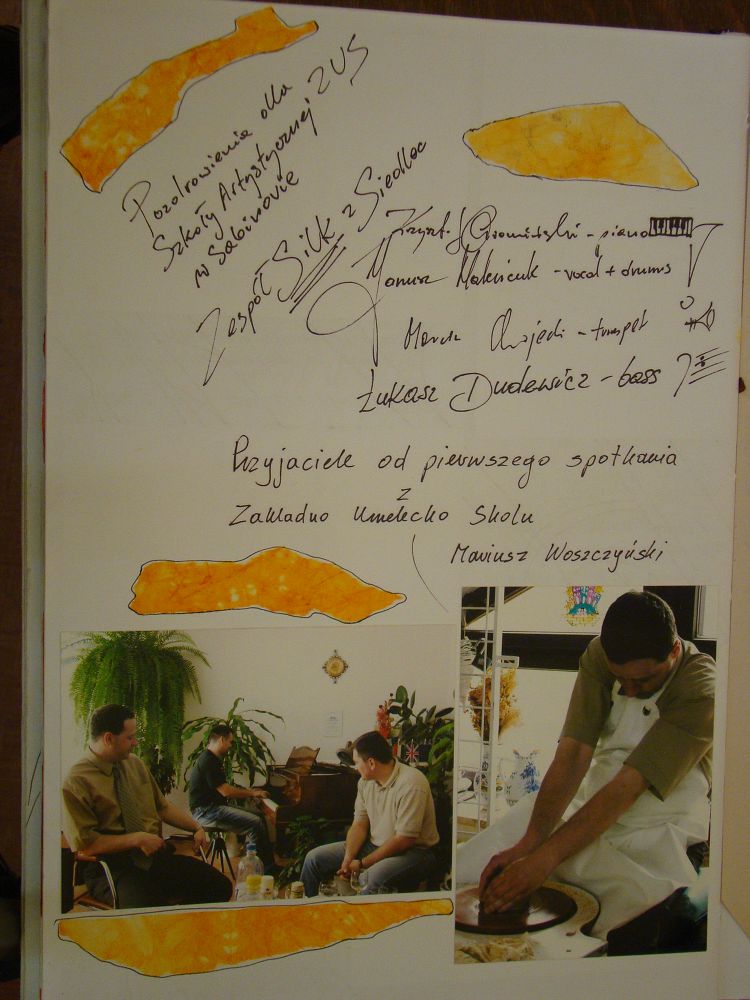 Pozdrowienia dla
Szkoły Artystycznej ZUŠ
w Sabinovie
Zespół Silk z Siedlec
Krzyszt. - piano
Janusz - vocal + drums
Marcin - trumpet
Łukasz Dudewicz - bass
Przyjaciele od pierwszego spotkania
z
Zakladno Umelecko Skolu
Mariusz Woszczyński